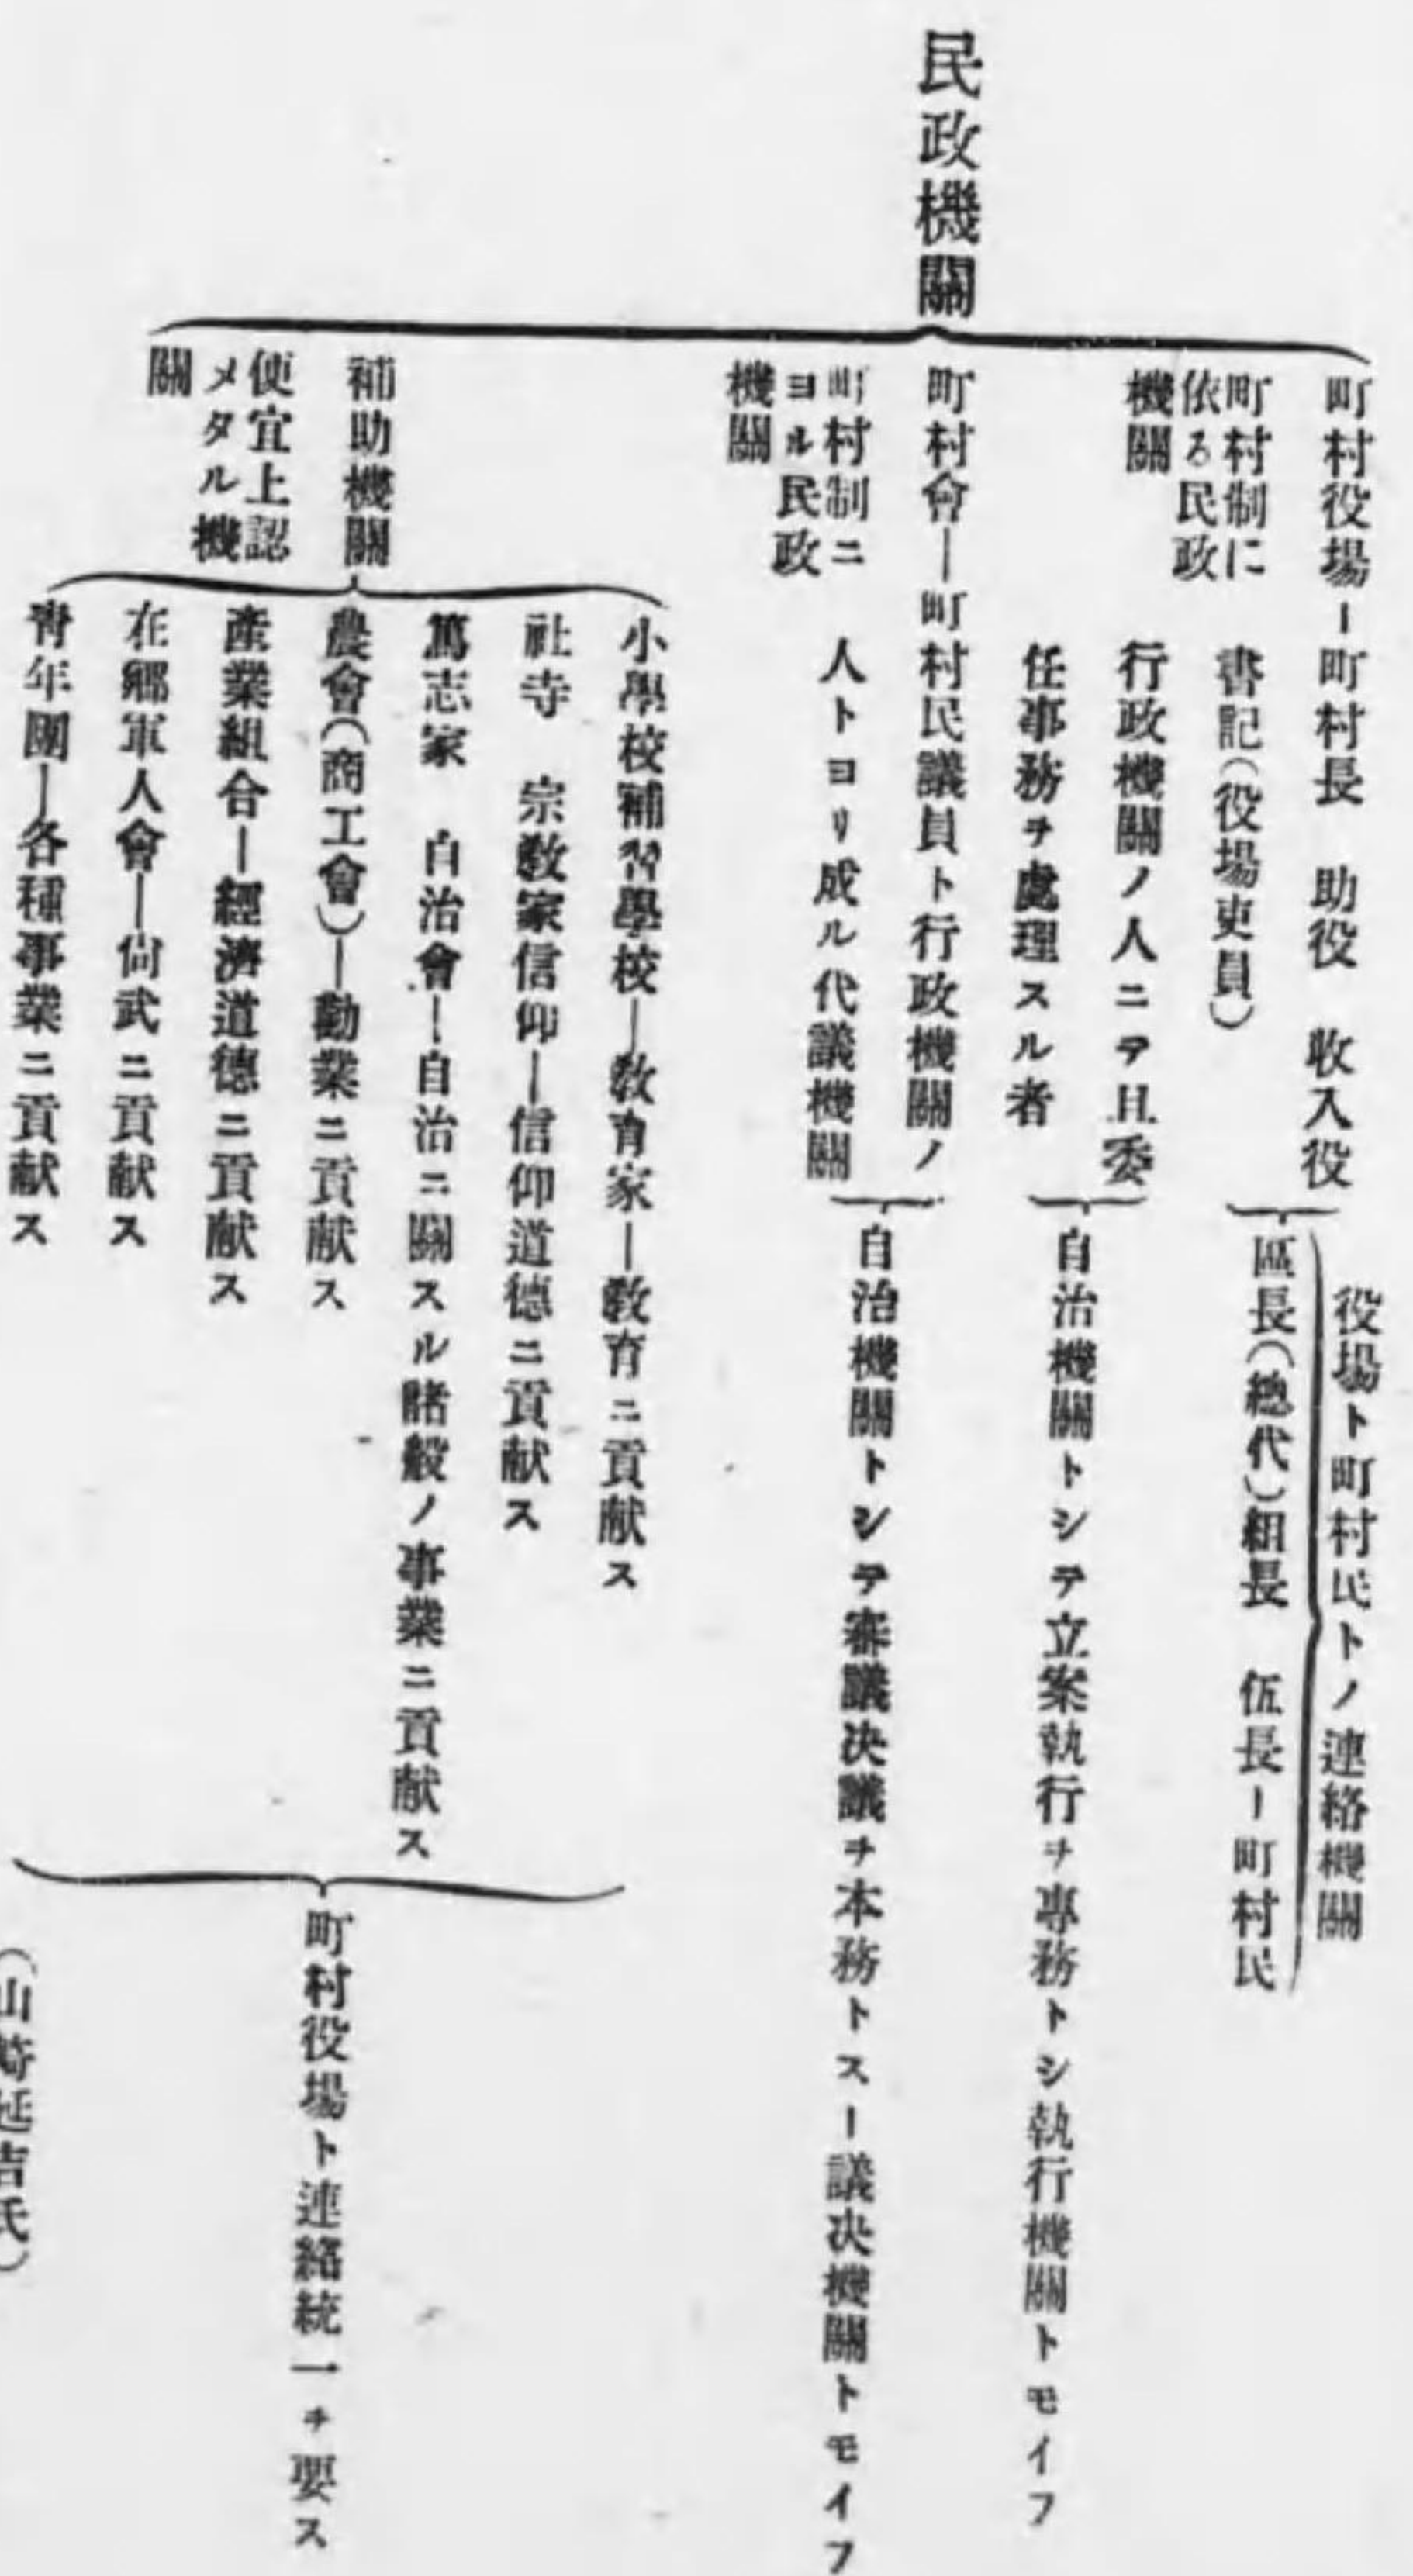 民政機關
町村役場ー町村長　助役　收入役
町村制に
依る民政
機關
書記（役場吏員）
役場ト町村民トノ連絡機關
區長（總代）組長　伍長ー町村民
行政機關ノ人ニテ且委
任事務ヲ處理スル者
自治機關トシテ立案執行ヲ專務トシ執行機關トモイフ
町村會ー町村民議員ト行政機關ノ
町村制ニ
ヨル民政
機關
人トヨリ成ル代議機關
自治機關トシテ審議決議ヲ本務トスー議決機關トモイフ
補助機關
便宜上認
メタル機
關
小學校補習學校ー敎育家ー敎育ニ貢献ス
社寺　宗敎家信仰ー信仰道德ニ貢献ス
篤志家　自治會ー自治ニ關スル諸般ノ事業ニ貢献ス
農會（商工會）ー勸業ニ貢献ス
產業組合ー經濟道德ニ貢献ス
在鄕軍人會ー尙武ニ貢献ス
靑年團ー各種事業ニ貢献ス
町村役場ト連絡統一ヲ要ス
（山崎延吉氏）